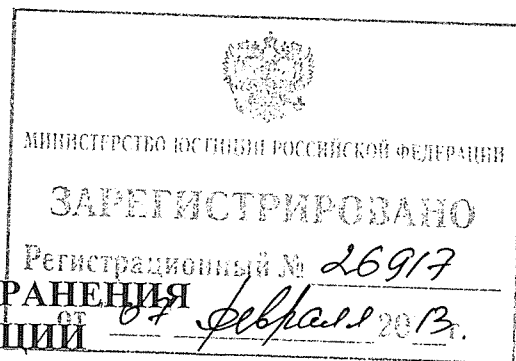 МИНИСТЕРСТВО ЮСТИЦИИ РОССИЙСКОЙ ФЕДЕРАЦИИ
ЗАРЕГИСТРИРОВАНО
Регистрационный № 26917
РАНЕНИЯ
от 07 февраля 2013г.
ЦИИ